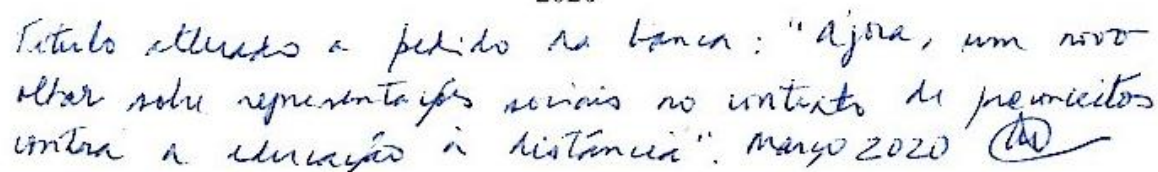 Título alterado a pedido da banca: "Ágora, um novo
olhar sobre representações sociais no contexto de preconceitos
contra a educação à distância". Março 2020